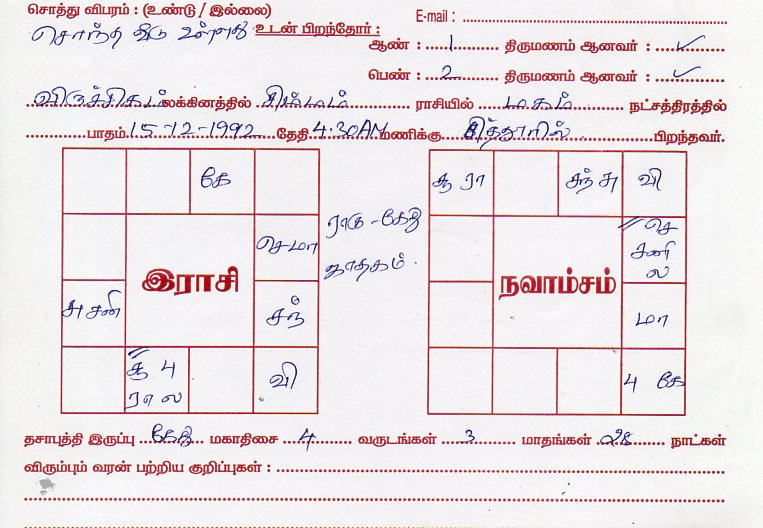 சொத்து விபரம் : (உண்டு / இல்லை) E-mail :
சொந்த வீடு உள்ளது உடன் பிறந்தோர் :
ஆண் : 1 திருமணம் ஆனவர் : ✓
பெண் : 2 திருமணம் ஆனவர் : ✓
விருச்சிகம் லக்கினத்தில் சிம்மம் ராசியில் மகம் நட்சத்திரத்தில்
பாதம் 15-12-1992 தேதி 4.30AM மணிக்கு சித்தூரில் பிறந்தவர்.
கே
செ மா
இராசி
சனி
சந்
சூ 4
ரா ல
வி
ராகு - கேது
ஜாதகம்.
சூ ரா சந் சு வி
செ
சனி
ல
நவாம்சம்
மா
4 கே
தசாபுத்தி இருப்பு கேது மகாதிசை 4 வருடங்கள் 3 மாதங்கள் 28 நாட்கள்
விரும்பும் வரன் பற்றிய குறிப்புகள் :